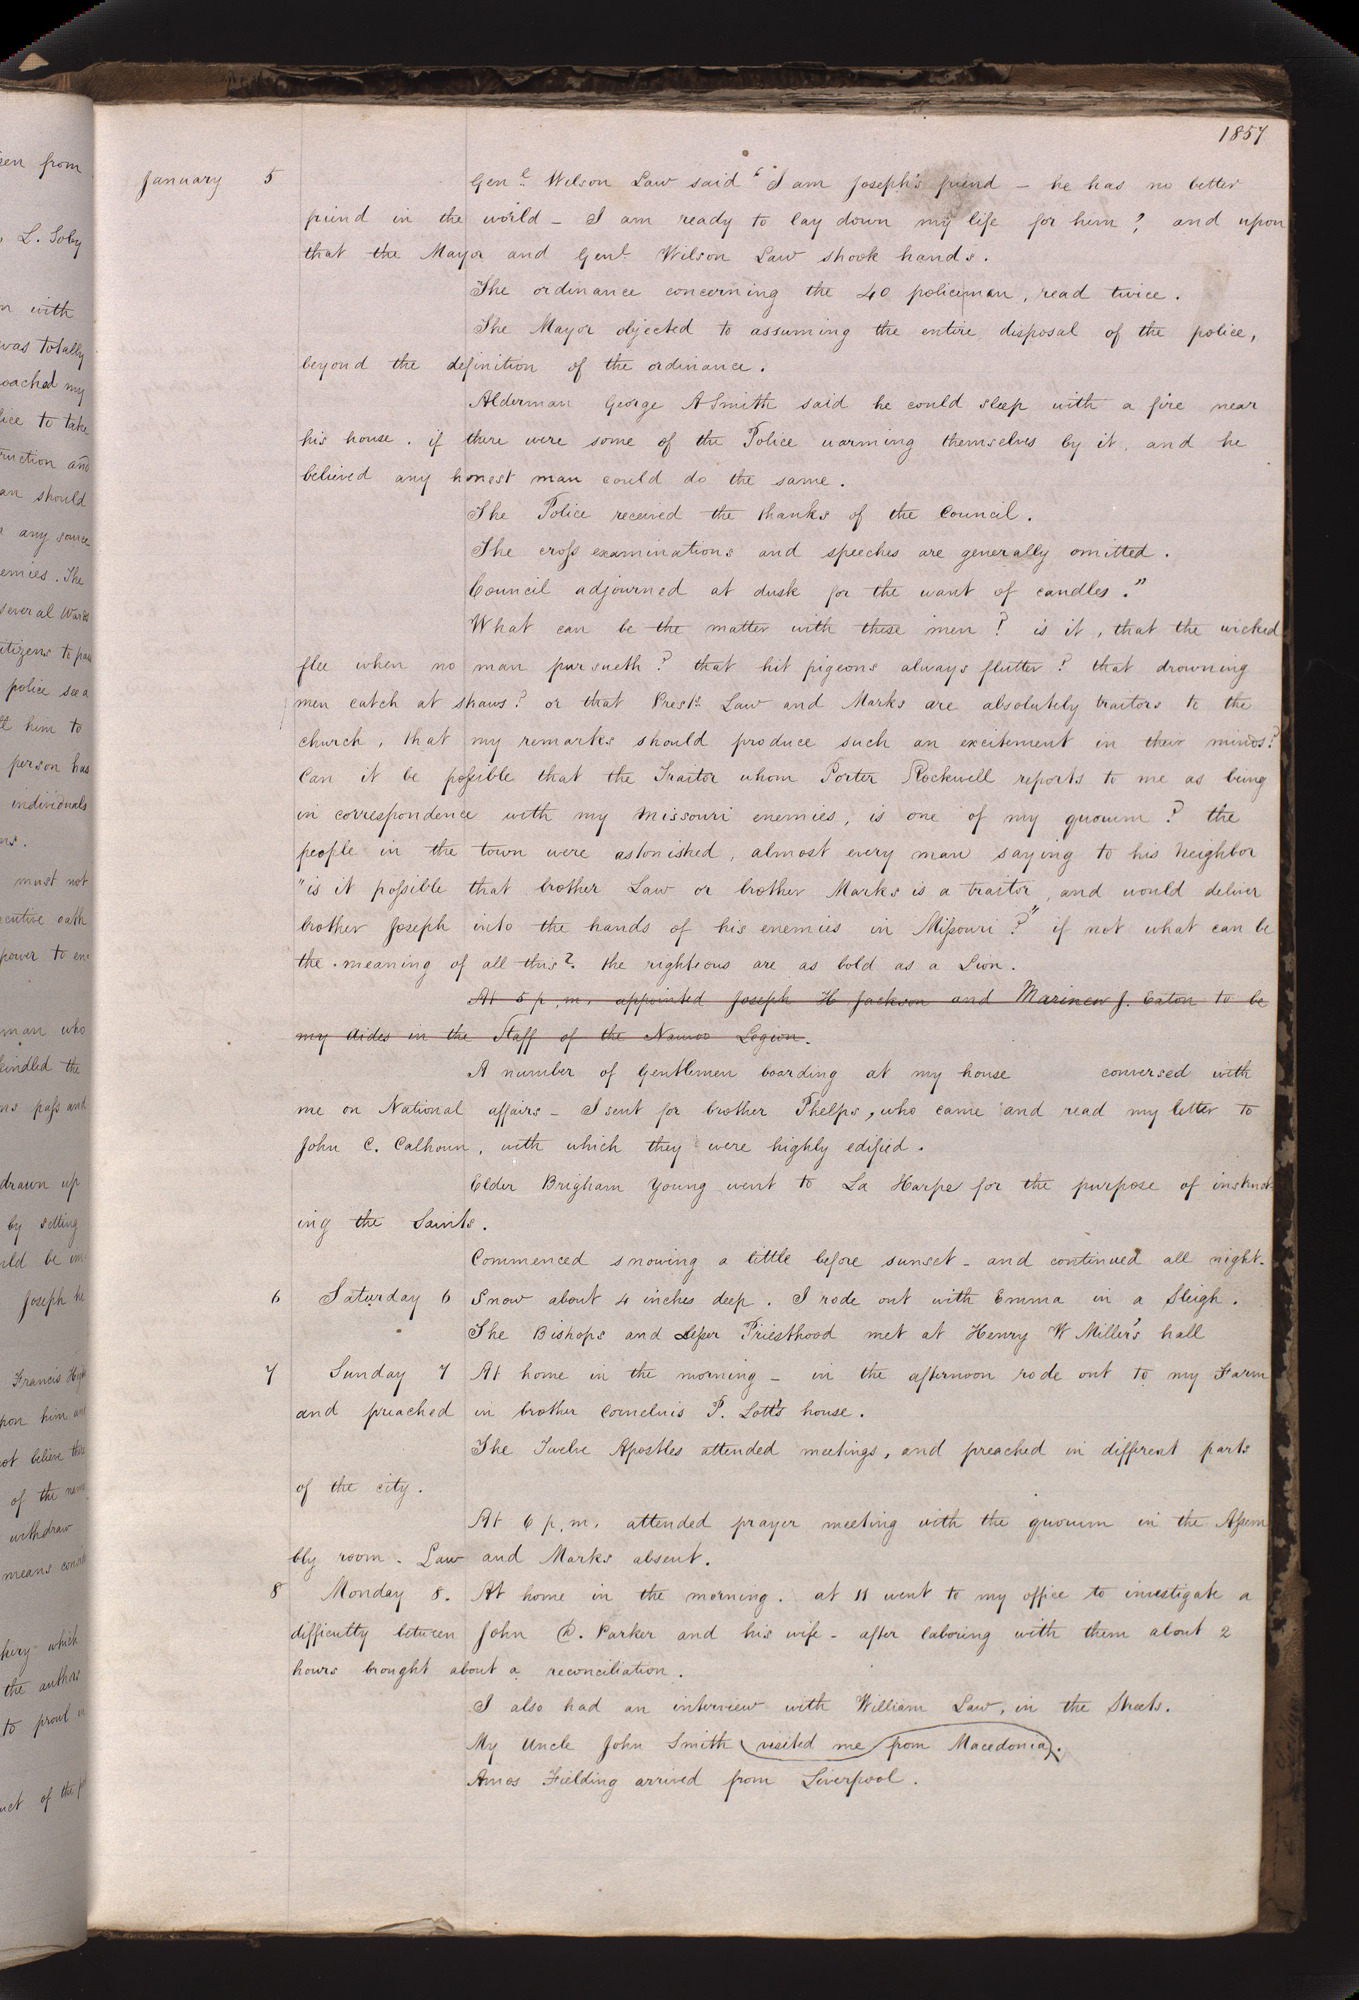 1857
January 5 Genl. Wilson Law said "I am Joseph's friend – he has no better
friend in the world – I am ready to lay down my life for him", and upon
that the Mayor and Genl. Wilson Law shook hands.
The ordinance concerning the 40 policemen, read twice.
The Mayor objected to assuming the entire disposal of the police,
beyond the definition of the ordinance.
Alderman George A Smith said he could sleep with a fire near
his house, if there were some of the Police warming themselves by it, and he
believed any honest man could do the same.
The Police received the thanks of the Council.
The cross examinations and speeches are generally omitted.
Council adjourned at dusk for the want of candles."
What can be the matter with these men? is it, that the wicked
flee when no man pursueth? that hit pigeons always flutter? that drowning
men catch at straws? or that Prests. Law and Marks are absolutely traitors to the
church, that my remarks should produce such an excitement in their minds?
Can it be possible that the Traitor whom Porter Rockwell reports to me as being
in correspondence with my Missouri enemies, is one of my quorum? the
people in the town were astonished, almost every man saying to his Neighbor
"is it possible that brother Law or brother Marks is a traitor, and would deliver
brother Joseph into the hands of his enemies in Missouri?" if not what can be
the meaning of all this? the righteous are as bold as a Lion.
At 5 p.m. appointed Joseph H Jackson and Marinew J. Eaton to be
my Aides in the Staff of the Nauvoo Legion.
A number of Gentlemen boarding at my house conversed with
me on National affairs – I sent for brother Phelps, who came and read my letter to
John C. Calhoun, with which they were highly edified.
Elder Brigham Young went to La Harpe for the purpose of instruct
ing the Saints.
Commenced snowing a little before sunset – and continued all night.
6 Saturday 6 Snow about 4 inches deep. I rode out with Emma in a Sleigh.
The Bishops and Lesser Priesthood met at Henry W Miller's hall
7 Sunday 7 At home in the morning – in the afternoon rode out to my Farm
and preached in brother Cornelius P. Lott's house.
The Twelve Apostles attended meetings, and preached in different parts
of the city.
At 6 p.m. attended prayer meeting with the quorum in the Assem
bly room. Law and Marks absent.
8 Monday 8. At home in the morning. at 11 went to my office to investigate a
difficulty between John D. Parker and his wife – after laboring with them about 2
hours brought about a reconciliation.
I also had an interview with William Law, in the Streets.
My Uncle John Smith visited me from Macedonia.
Amos Fielding arrived from Liverpool.